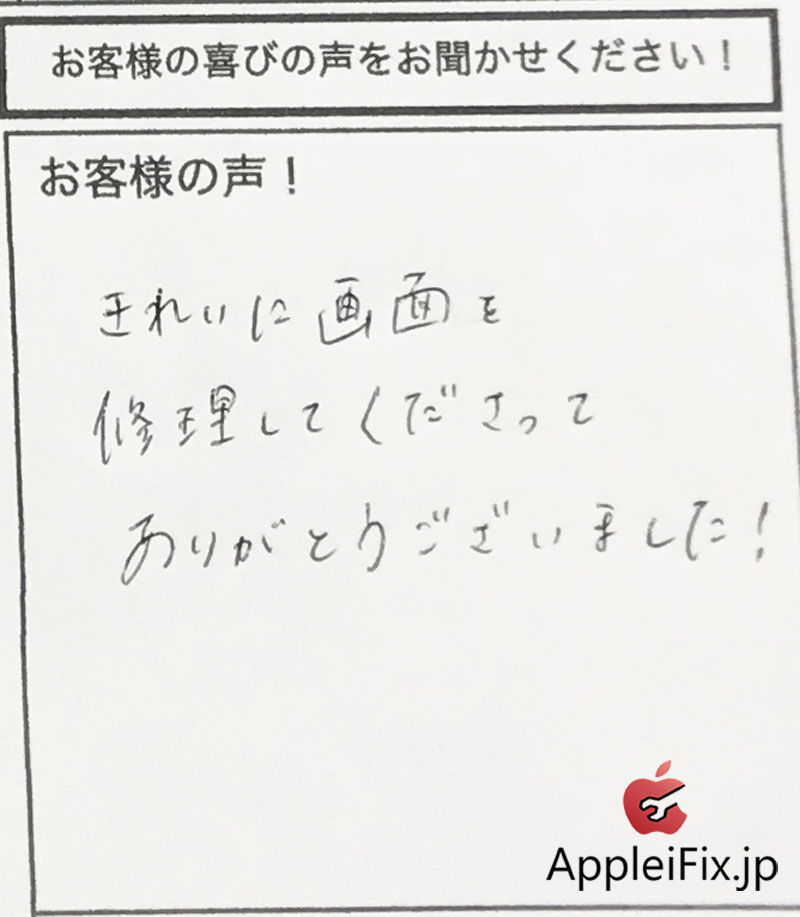 お客様の喜びの声をお聞かせください！
お客様の声！
きれいに画面を
修理してくださって
ありがとうございました！
AppleiFix.jp